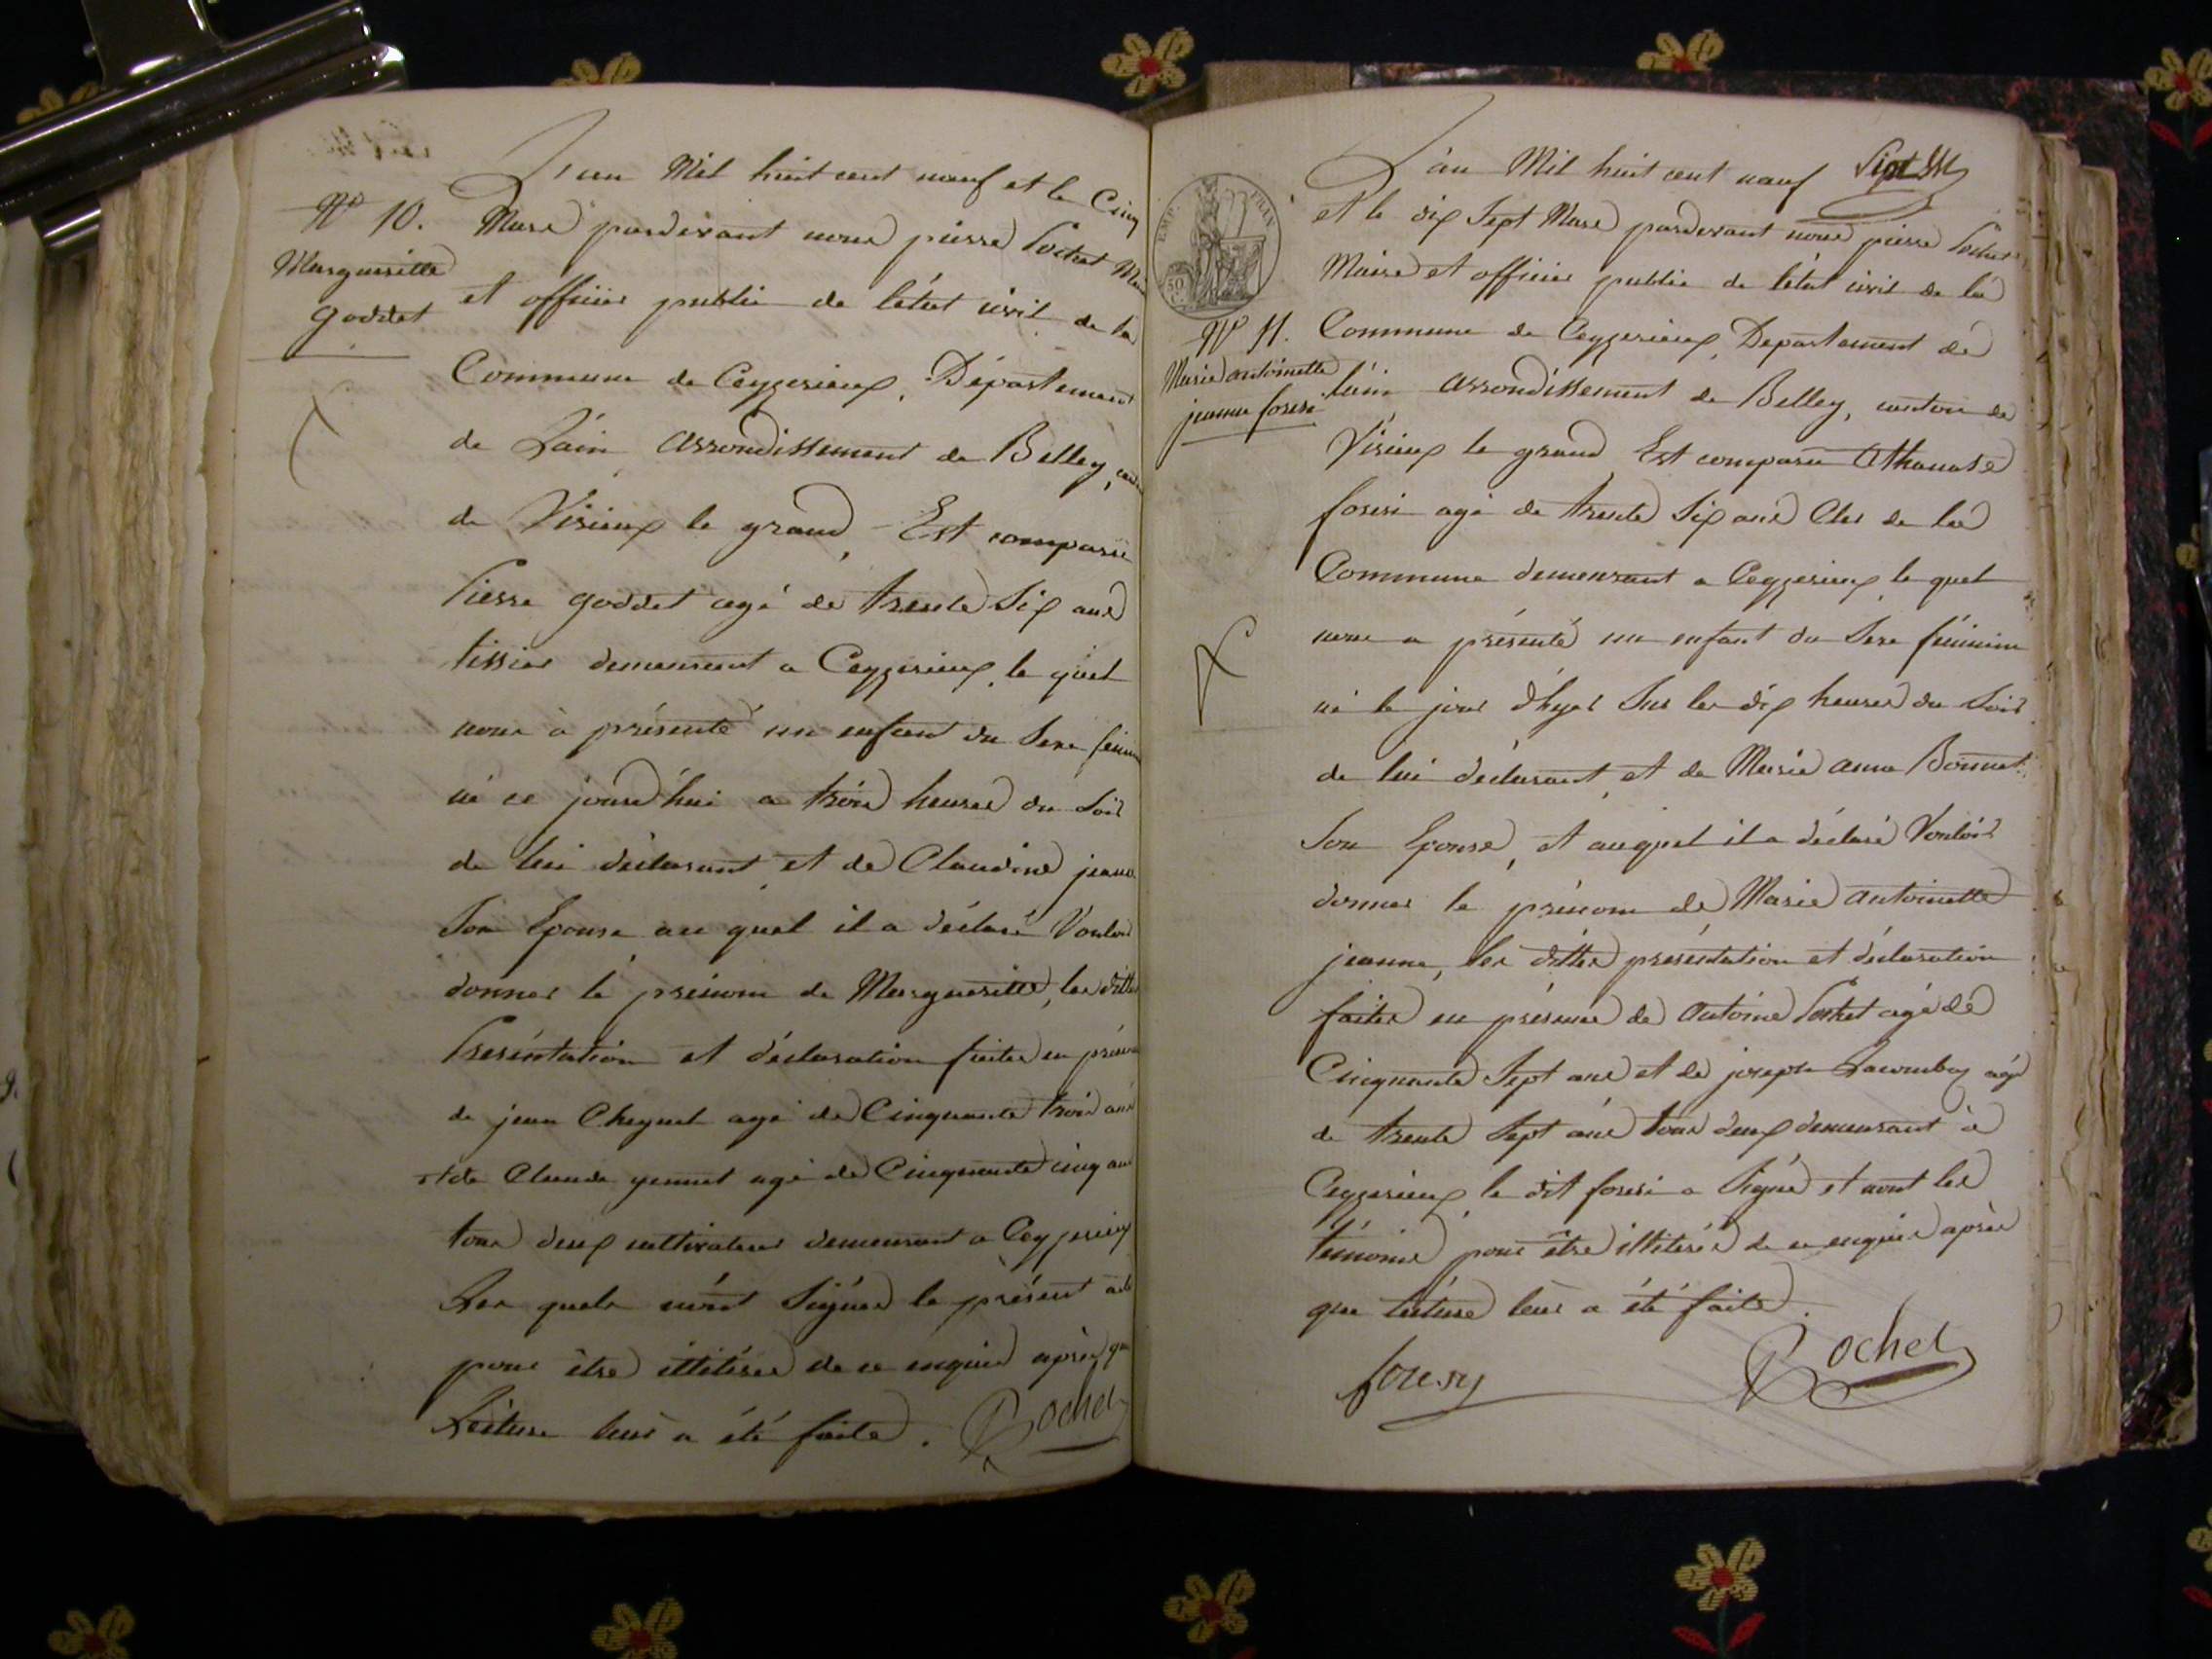 L'an Mil huit cent neuf et le Cinq
N° 10.
Margueritte
goddet
Mars pardevant nous pierre Pochet Mai
et officier public de l'état civil de la
Commune de Ceyzerieux, Département
de L'ain, arrondissement de Belley, can
de Virieux le grand, Est comparu
Pierre goddet agé de trente Six ans
tissier demeurant a Ceyzerieux, le quel
nous à présenté un enfant du Sexe fémin
né ce jourd'hui a trois heures du Soir
de lui déclarant, et de Claudine jeanne
Son Epouse au quel il a déclaré Vouloir
donner le prénom de Margueritte, les dittes
Présentation et déclaration faites en présence
de jean agé de Cinquante trois ans
et de Claude agé de Cinquante cinq ans
tous deux cultivateurs demeurant a Ceyzerieux
Les quels n'ont Signés le présent acte
pour être illitérés de ce enquis après que
Lecture leur a été faite. Pochet
L'an Mil huit cent neuf Sept
et le dix Sept Mars pardevant nous pierre Pochet
Maire et officier public de l'état civil de la
N° 11.
Marie antoinette
jeanne foresi
Commune de Ceyzerieux, Departement de
l'ain arrondissement de Belley, canton de
Virieux le grand Est comparu Athanase
foresi agé de trente Six ans de la
Commune demeurant a Ceyzerieux, le quel
nous a présenté un enfant du Sexe féminin
né le jour d'hyer Sur les dix heures du Soir
de lui déclarant, et de Marie anne Bonnet
Son Epouse, et auquel il a déclaré Vouloir
donner le prénom de Marie antoinette
jeanne, les dittes présentation et déclaration
faites en présence de Antoine Pochet agé de
Cinquante Sept ans et de joseph agé
de trente Sept ans tous deux demeurant à
Ceyzerieux, le dit foresi a Signé et nont les
témoins pour être illitérés de ce enquis après
que lecture leur a été faite.
foresy Pochet
EMP. FRAN
50